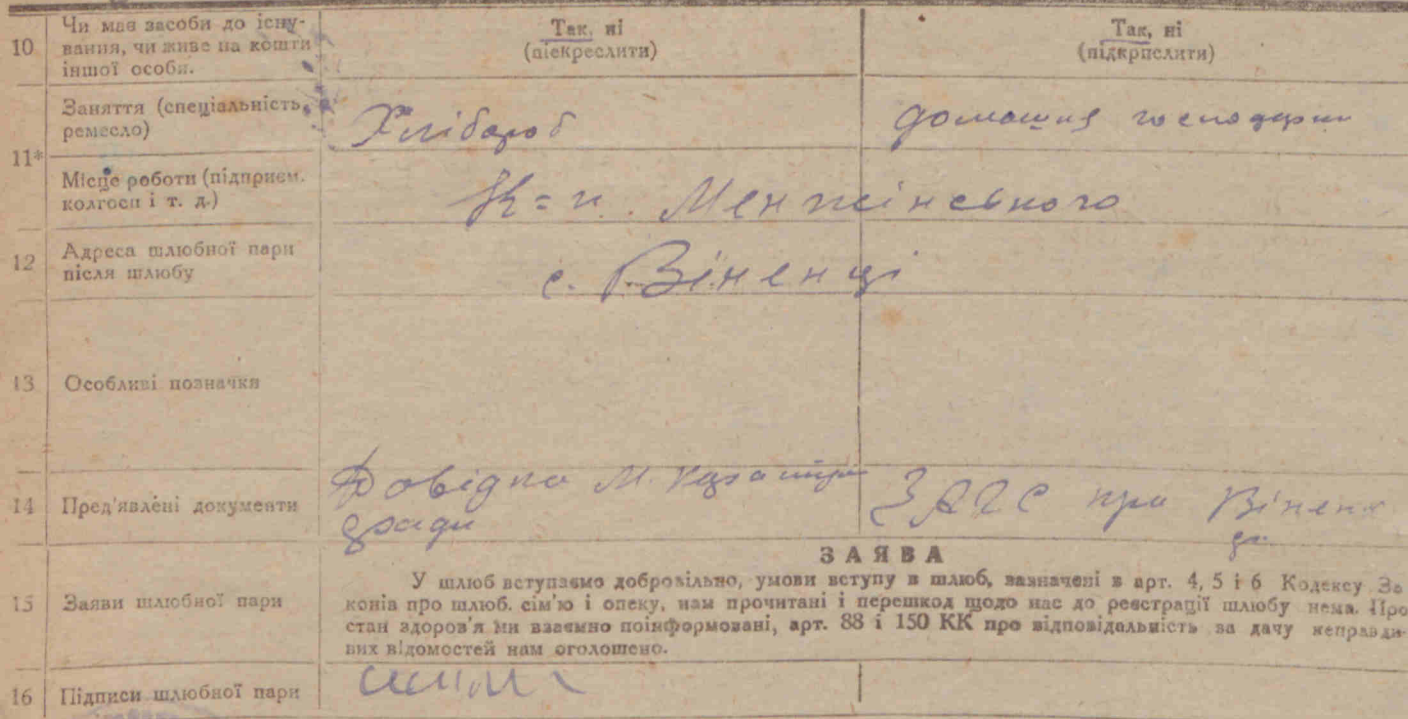 10 Чи має засоби до існу-
вання, чи живе на кошти
іншої особи.
Так, ні
(підкреслити)
Так, ні
(підкрпслити)
11* Заняття (спеціальність,
ремесло)
Хлібороб
домашня господарка
Місце роботи (підприєм.
колгосп і т. д.)
К=п. Менжінського
12 Адреса шлюбної пари
після шлюбу
с. Віненці
13 Особливі позначки
14 Пред'явлені документи
Довідка М.
ради
ЗАГС при Вінен
ЗАЯВА
15 Заяви шлюбної пари
У шлюб вступаємо добровільно, умови вступу в шлюб, зазначені в арт. 4, 5 і 6 Кодексу За
конів про шлюб. сім'ю і опеку, нам прочитані і перешкод щодо нас до реєстрації шлюбу нема. Про
стан здоров'я ми взаємно поінформовані, арт. 88 і 150 КК про відповідальність за дачу неправди-
вих відомостей нам оголошено.
16 Підписи шлюбної пари